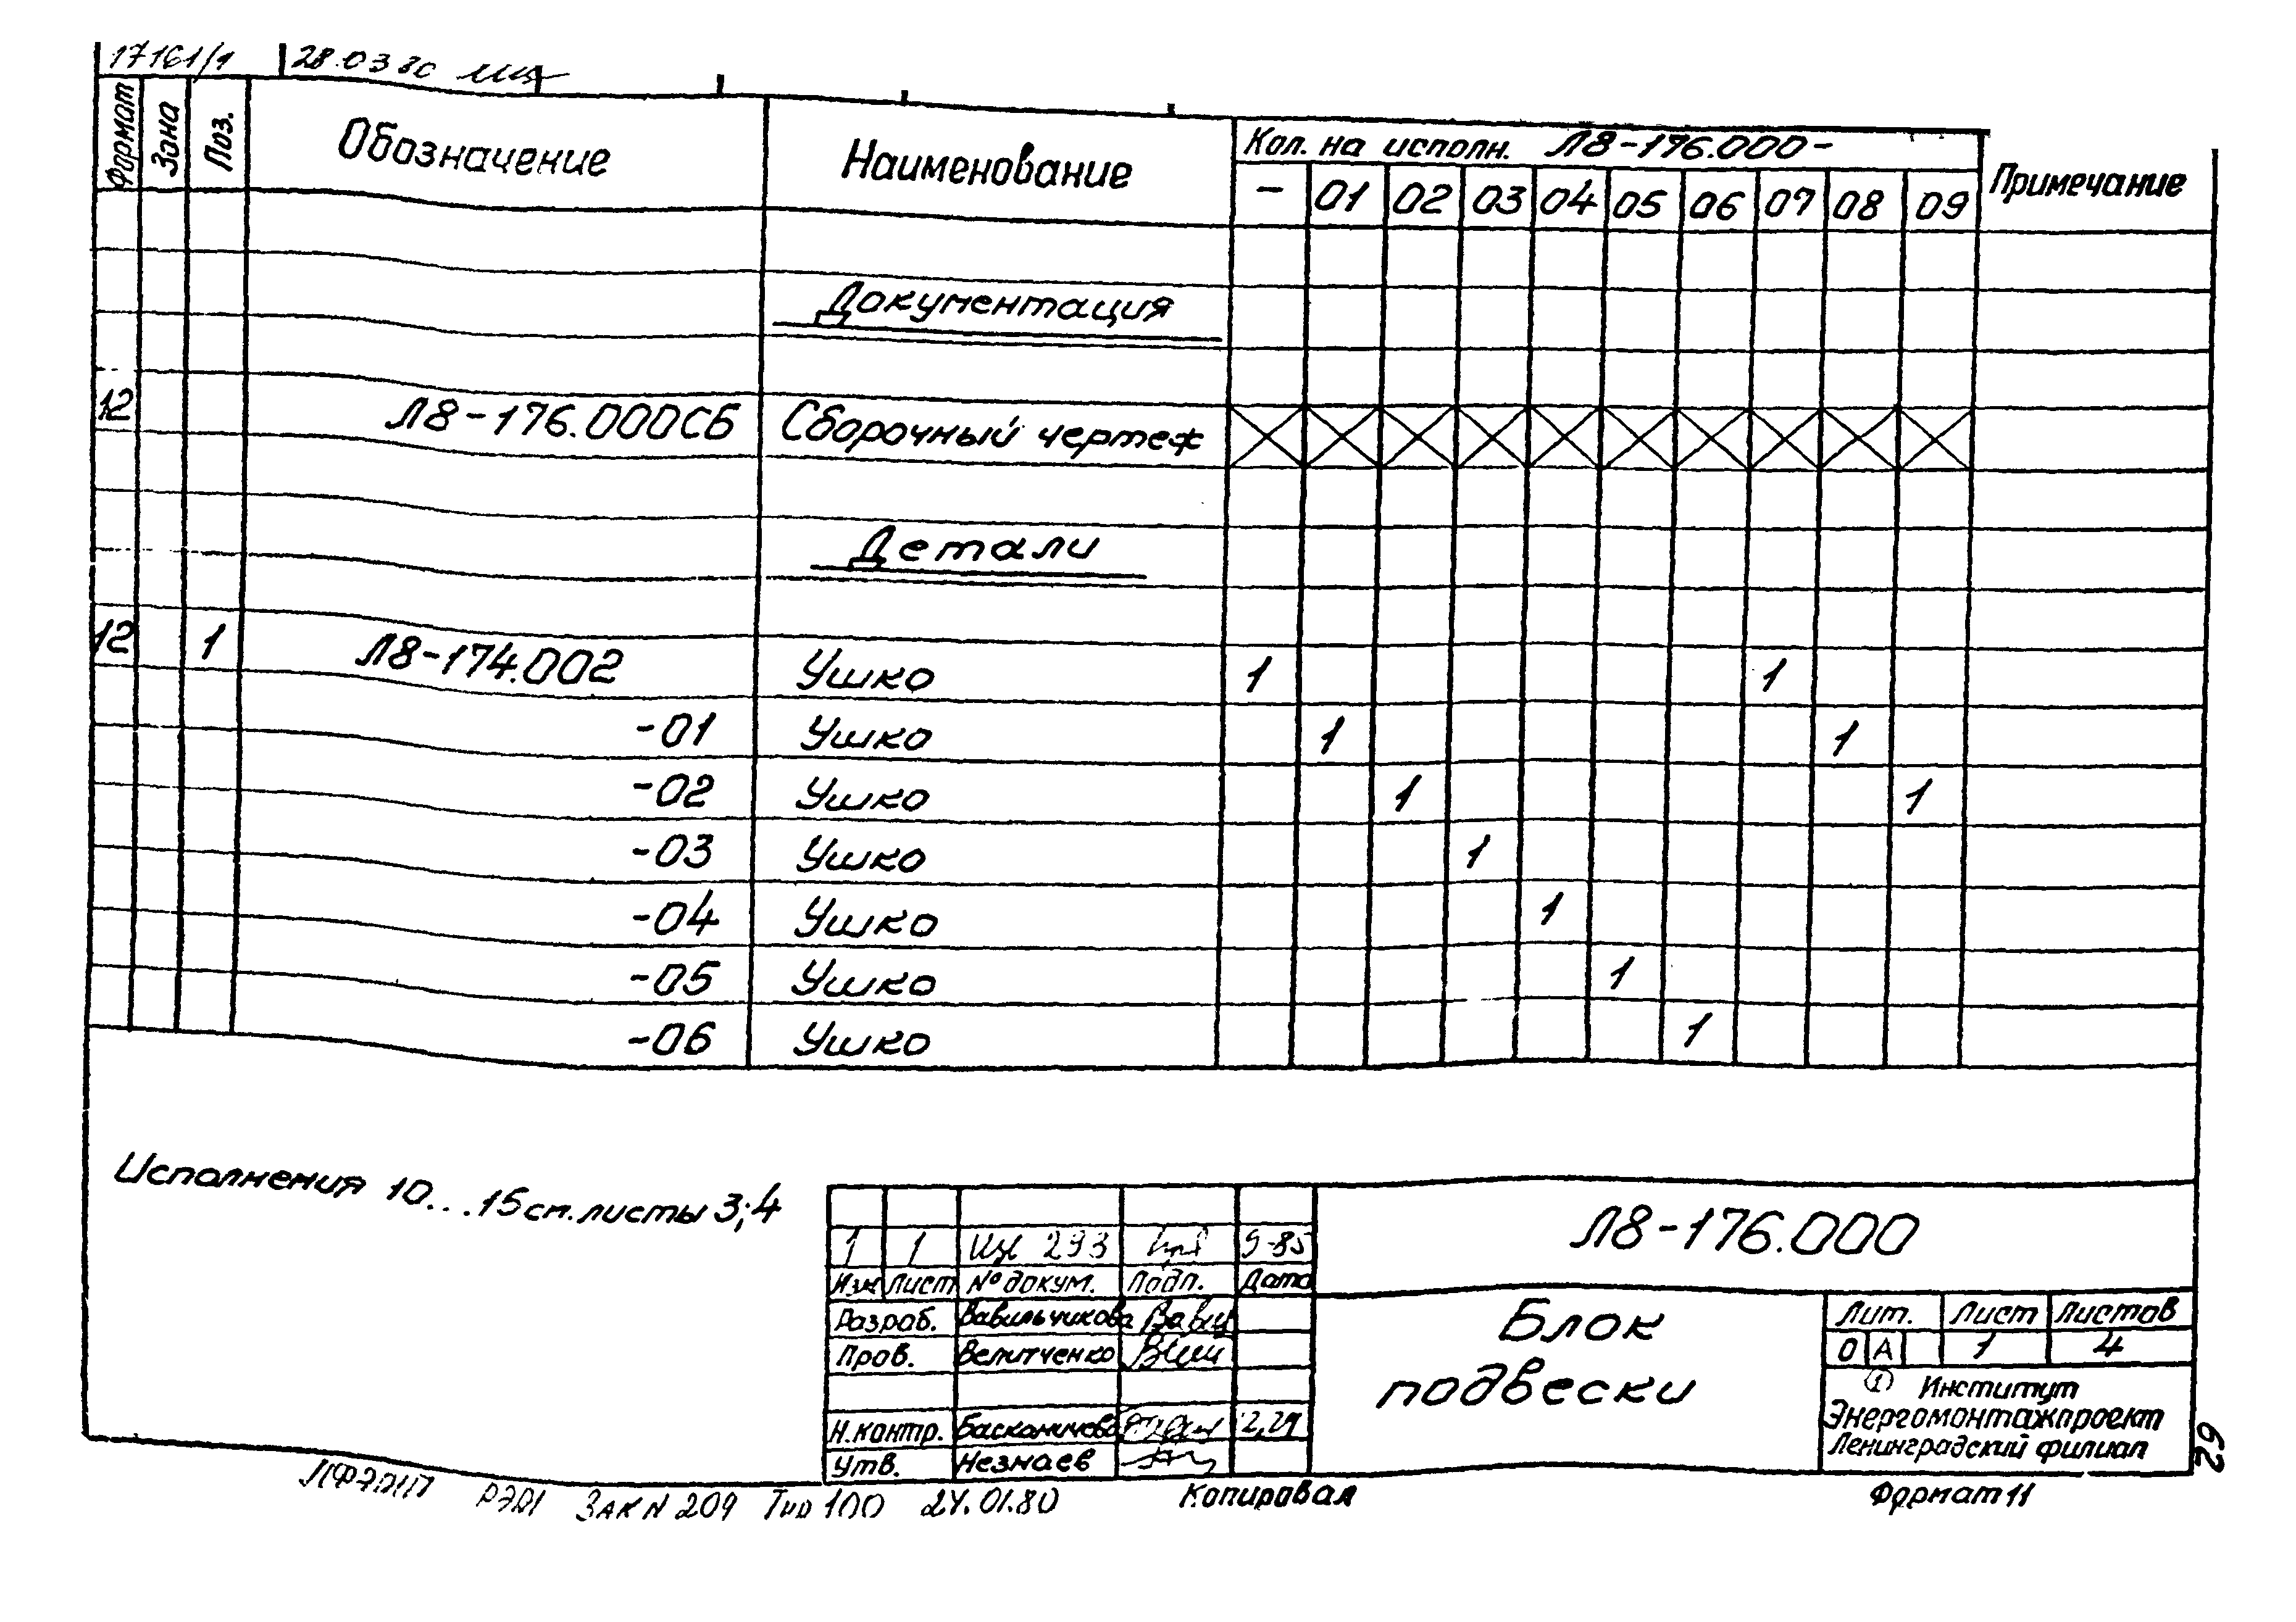 17161/1 28.03.80
Формат Зона Поз. Обозначение Наименование Кол. на исполн. Л8-176.000- Примечание
- 01 02 03 04 05 06 07 08 09
Документация
12 Л8-176.000СБ Сборочный чертеж
Детали
12 1 Л8-174.002 Ушко 1 1
-01 Ушко 1 1
-02 Ушко 1 1
-03 Ушко 1
-04 Ушко 1
-05 Ушко 1
-06 Ушко 1
Исполнения 10...15 см. листы 3;4
Л8-176.000
1 1 293 9-85
Изм Лист № докум. Подп. Дата
Разраб. Вавильчикова
Пров. Велитченко
Н.контр.
Утв. Незнаев
Блок
подвески
Лит. Лист Листов
О А 1 4
1 Институт
Энергомонтажпроект
Ленинградский филиал
29
Зак N 209 Тир 100 24.01.80 Копировал Формат 11